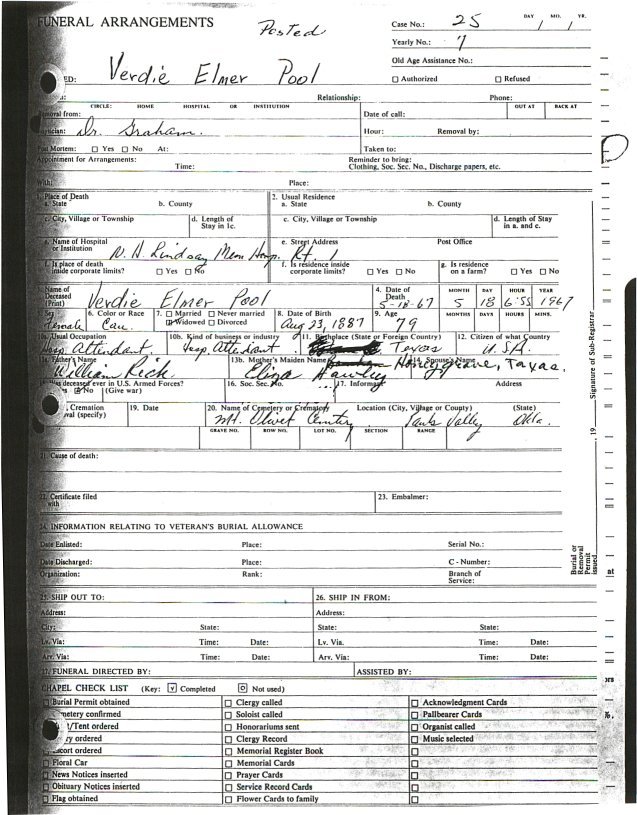 FUNERAL ARRANGEMENTS
Posted
Case No.: 25 DAY MO. YR. / /
Yearly No.: 7
Old Age Assistance No.:
ED: Verdie Elmer Pool
☐ Authorized ☐ Refused
Relationship: Phone:
CIRCLE: HOME HOSPITAL OR INSTITUTION OUT AT BACK AT
moval from: Date of call:
sician: Dr. Graham. Hour: Removal by:
ost Mortem: ☐ Yes ☐ No At: Taken to:
Appointment for Arrangements: Reminder to bring:
Time: Clothing, Soc. Sec. No., Discharge papers, etc.
With: Place:
Place of Death 2. Usual Residence
a. State b. County a. State b. County
c. City, Village or Township d. Length of Stay in 1c. c. City, Village or Township d. Length of Stay in a. and c.
e. Name of Hospital or Institution W. H. Lindsay Mem Hosp. e. Street Address Rt. 1 Post Office
f. Is place of death inside corporate limits? ☐ Yes ☐ No f. Is residence inside corporate limits? ☐ Yes ☐ No g. Is residence on a farm? ☐ Yes ☐ No
3. Name of Deceased (Print) Verdie Elmer Pool 4. Date of Death 5-18-67 MONTH 5 DAY 18 HOUR 6:55 YEAR 1967
5. Sex Female 6. Color or Race Cau. 7. ☐ Married ☐ Never married ☒ Widowed ☐ Divorced 8. Date of Birth Aug 23, 1887 9. Age 79 MONTHS DAYS HOURS MINS.
10a. Usual Occupation Hosp. Attendant 10b. Kind of business or industry Hosp. Attendant. 11. Birthplace (State or Foreign Country) Texas 12. Citizen of what Country U.S.A.
13a. Father's Name William Rick 13b. Mother's Maiden Name Eliza Hawley 14. Spouse's Name Honeygrove, Texas.
Was deceased ever in U.S. Armed Forces? es ☒ No (Give war) 16. Soc. Sec. No. ... 17. Informant Address
, Cremation val (specify) 19. Date 20. Name of Cemetery or Crematory Mt. Olivet Cemetery Location (City, Village or County) Pauls Valley (State) Okla.
GRAVE NO. ROW NO. LOT NO. SECTION RANGE
21. Cause of death:
22. Certificate filed with 23. Embalmer:
24. INFORMATION RELATING TO VETERAN'S BURIAL ALLOWANCE
Date Enlisted: Place: Serial No.:
Date Discharged: Place: C - Number:
Organization: Rank: Branch of Service:
25. SHIP OUT TO: 26. SHIP IN FROM:
Address: Address:
City: State: City: State:
Lv. Via: Time: Date: Lv. Via: Time: Date:
Arv. Via: Time: Date: Arr. Via: Time: Date:
27. FUNERAL DIRECTED BY: ASSISTED BY:
CHAPEL CHECK LIST (Key: ☑ Completed ☐ Not used)
☐ Burial Permit obtained ☐ Clergy called ☐ Acknowledgment Cards
metery confirmed ☐ Soloist called ☐ Pallbearer Cards
t/Tent ordered ☐ Honorariums sent ☐ Organist called
ry ordered ☐ Clergy Record ☐ Music selected
☐ Escort ordered ☐ Memorial Register Book ☐
☐ Floral Car ☐ Memorial Cards ☐
☐ News Notices inserted ☐ Prayer Cards ☐
☐ Obituary Notices inserted ☐ Service Record Cards ☐
☐ Flag obtained ☐ Flower Cards to family ☐
Signature of Sub-Registrar
, 19
Burial or Removal Permit issued
at